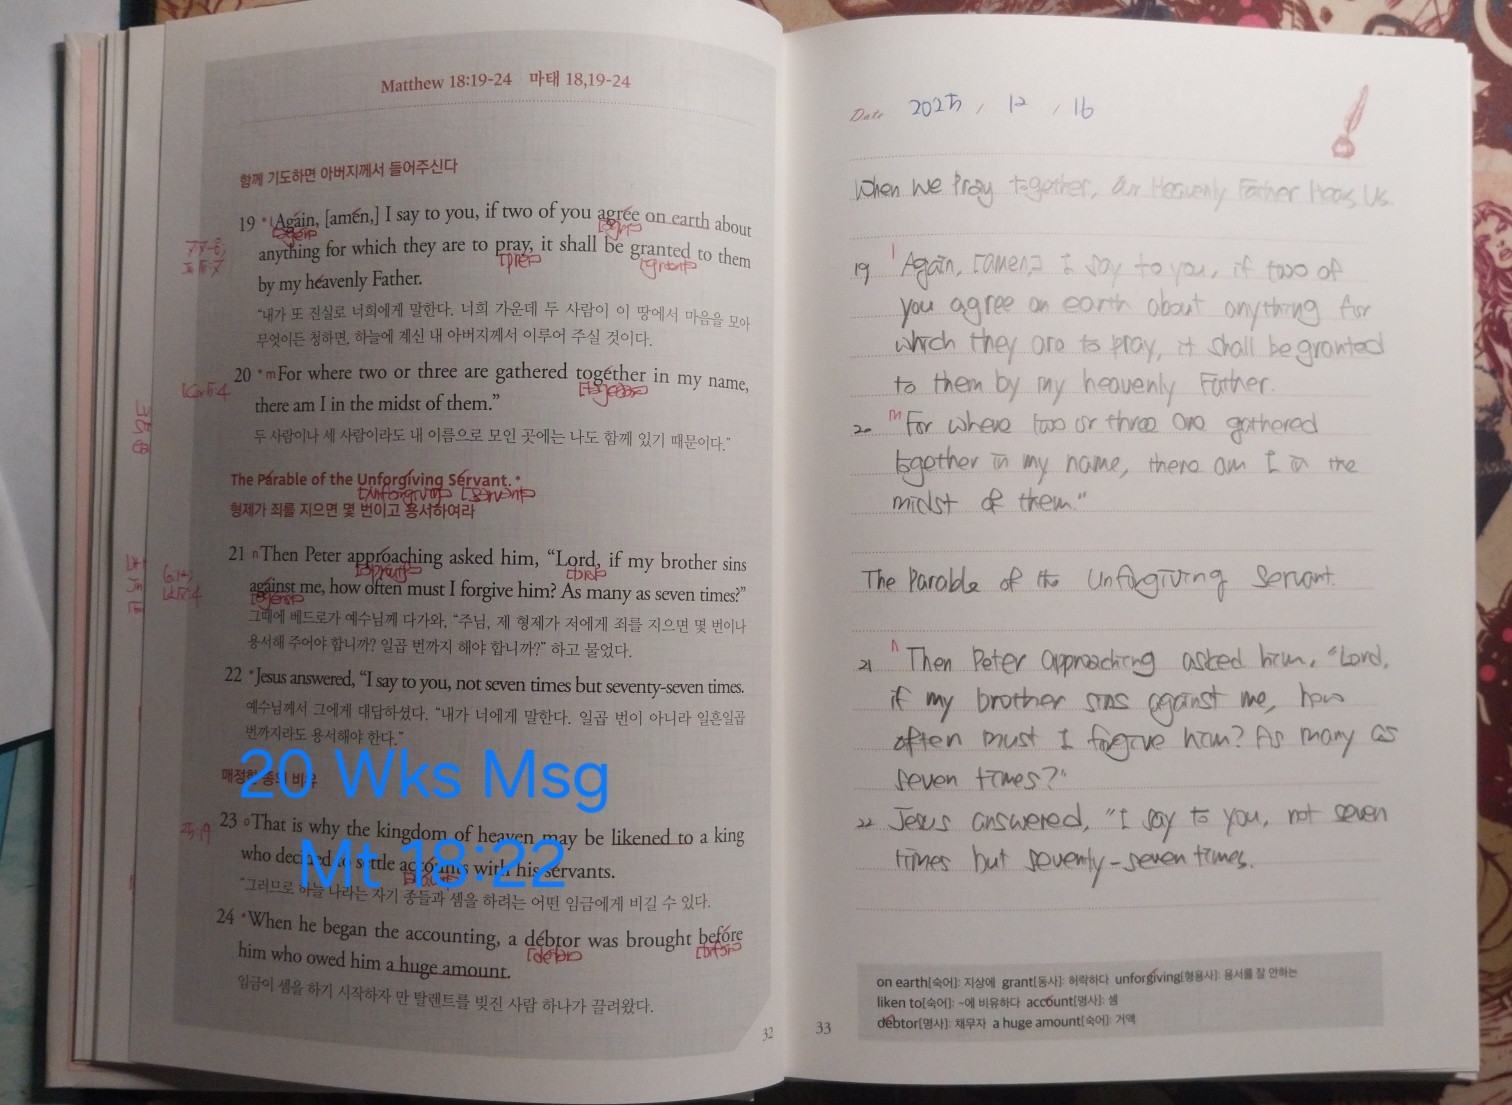 Matthew 18:19-24 마태 18,19-24
함께 기도하면 아버지께서 들어주신다
19 *l Again, [amen,] I say to you, if two of you agree on earth about
anything for which they are to pray, it shall be granted to them
by my heavenly Father.
"내가 또 진실로 너희에게 말한다. 너희 가운데 두 사람이 이 땅에서 마음을 모아
무엇이든 청하면, 하늘에 계신 내 아버지께서 이루어 주실 것이다.
20 *m For where two or three are gathered together in my name,
1Cor5:4
there am I in the midst of them."
두 사람이나 세 사람이라도 내 이름으로 모인 곳에는 나도 함께 있기 때문이다."
The Parable of the Unforgiving Servant.*
형제가 죄를 지으면 몇 번이고 용서하여라
21 n Then Peter approaching asked him, "Lord, if my brother sins
against me, how often must I forgive him? As many as seven times?"
그때에 베드로가 예수님께 다가와, "주님, 제 형제가 저에게 죄를 지으면 몇 번이나
용서해 주어야 합니까? 일곱 번까지 해야 합니까?" 하고 물었다.
22 *Jesus answered, "I say to you, not seven times but seventy-seven times.
예수님께서 그에게 대답하셨다. "내가 너에게 말한다. 일곱 번이 아니라 일흔일곱
번까지라도 용서해야 한다."
20 Wks Msg
매정한 종의 비유
23 o That is why the kingdom of heaven may be likened to a king
25:19
who decided to settle accounts with his servants.
Mt 18:22
"그러므로 하늘 나라는 자기 종들과 셈을 하려는 어떤 임금에게 비길 수 있다.
24 *When he began the accounting, a debtor was brought before
him who owed him a huge amount.
임금이 셈을 하기 시작하자 만 탈렌트를 빚진 사람 하나가 끌려왔다.
32
Date 2025 / 12 / 16
When We Pray together, Our Heavenly Father Hears Us.
19 l Again, [amen,] I say to you, if two of
you agree on earth about anything for
which they are to pray, it shall be granted
to them by my heavenly Father.
20 m For where two or three are gathered
together in my name, there am I in the
midst of them."
The Parable of the Unforgiving Servant.
21 n Then Peter approaching asked him, "Lord,
if my brother sins against me, how
often must I forgive him? As many as
seven times?"
22 Jesus answered, "I say to you, not seven
times but seventy-seven times.
on earth[숙어]: 지상에 grant[동사]: 허락하다 unforgiving[형용사]: 용서를 잘 안하는
liken to[숙어]: ~에 비유하다 account[명사]: 셈
debtor[명사]: 채무자 a huge amount[숙어]: 거액
33